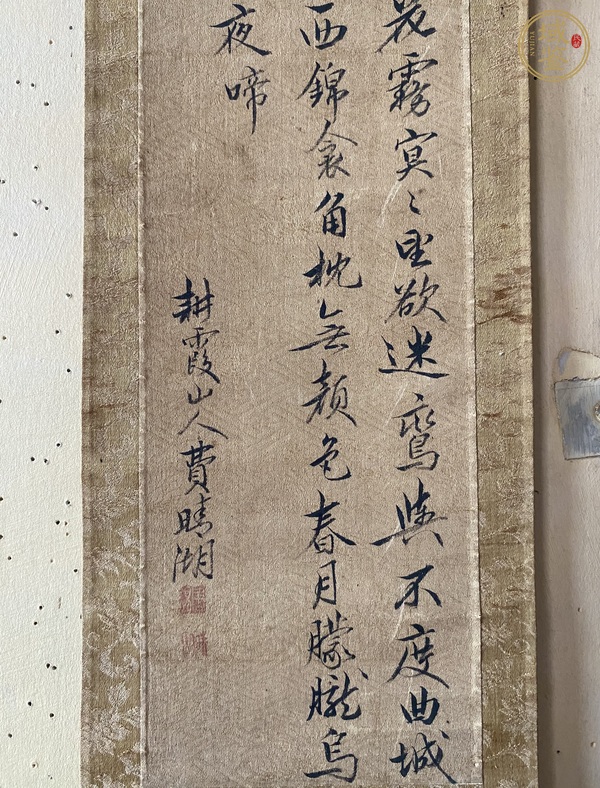 花霧寅〻望欲迷鸞輿不度曲城
西錦衾角枕無顏色春月朦朧烏
夜啼
耕霞山人費晴湖